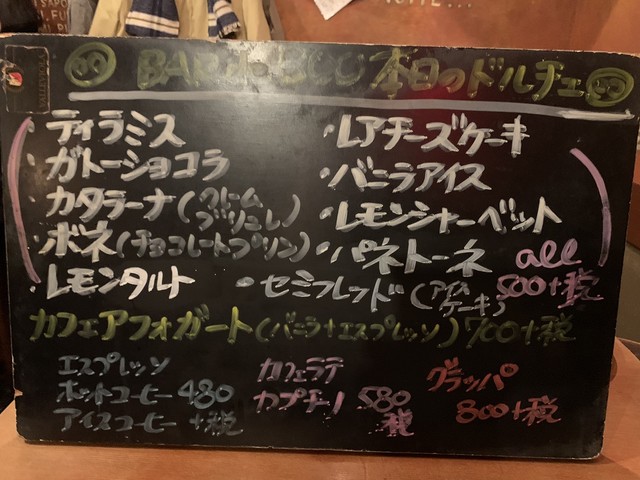 本日のドルチェ
・ティラミス
・ガトーショコラ
・カタラーナ(クリームブリュレ)
・ボネ(チョコレートプリン)
・レモンタルト
・レアチーズケーキ
・バニラアイス
・レモンシャーベット
・パネトーネ
・セミフレッド(アイスケーキ)
all
500+税
カフェアフォガート(バニラ+エスプレッソ)700+税
エスプレッソ
ホットコーヒー 480
アイスコーヒー +税
カフェラテ
カプチーノ 580
税
グラッパ
800+税